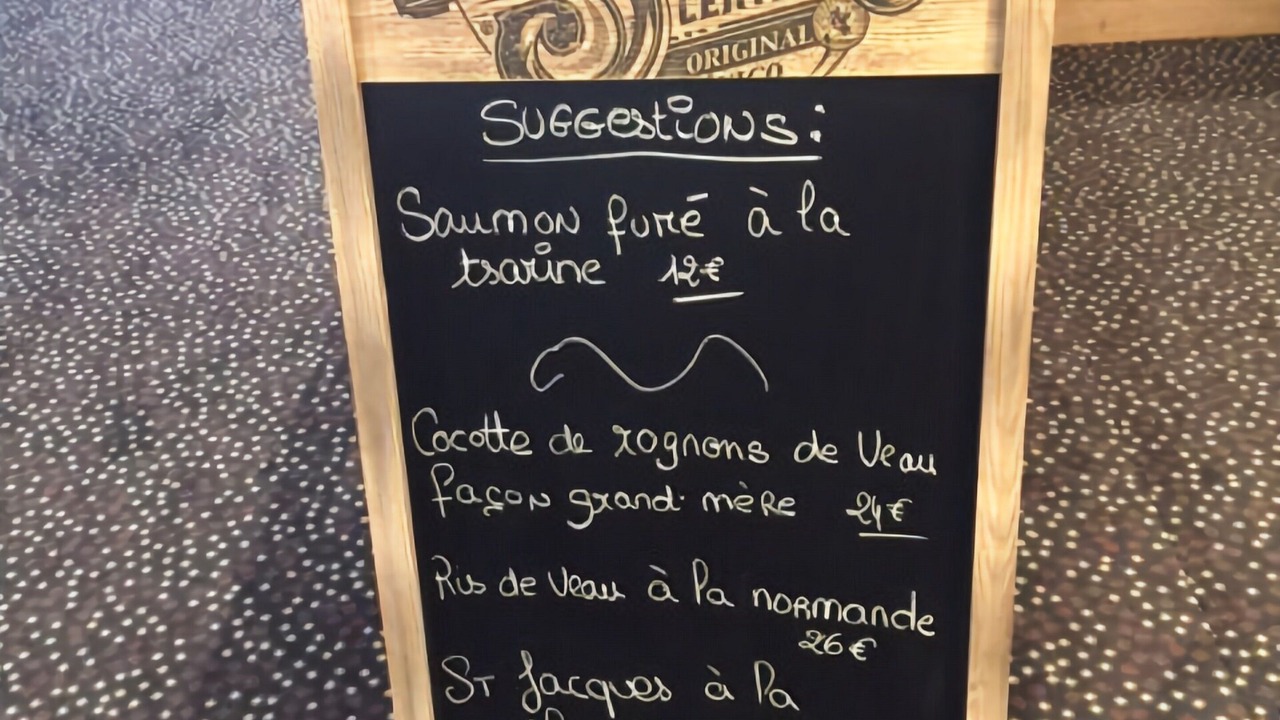 ORIGINAL
SUGGestiONS:
Saumon fumé à la
tsarine 12€
Cocotte de rognons de Veau
façon grand-mère 24€
Ris de Veau à la normande
26€
St Jacques à la